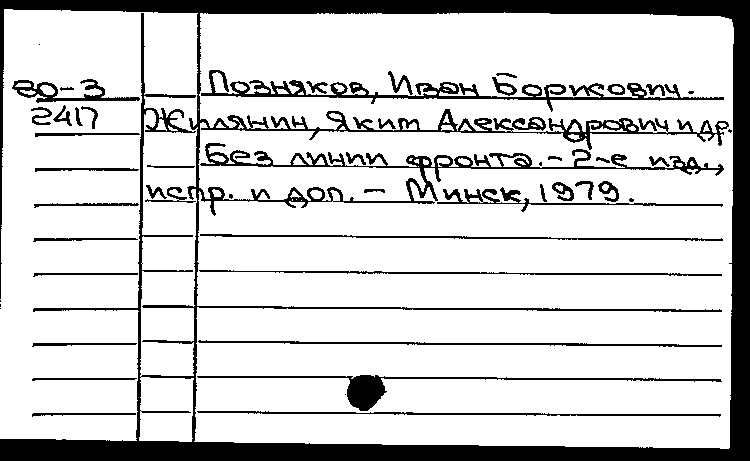 80-3 Позняков, Иван Борисович.
2417 Жилянин, Яким Александрович и др.
Без линии фронта. - 2-е изд.,
испр. и доп. - Минск, 1979.